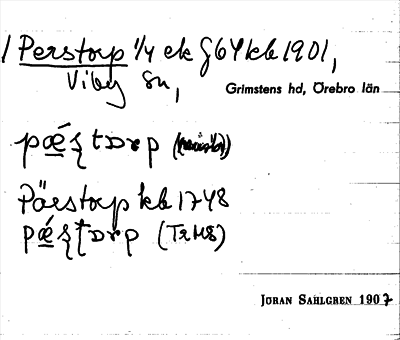 / Perstorp 1/4 ek § 64 kb 1901,
Viby sn,
Grimstens hd, Örebro län
pǽʂtɔrp
Pärstorp kb 1748
pǽʂtɔrp (TrHS)
JÖRAN SAHLGREN 1907